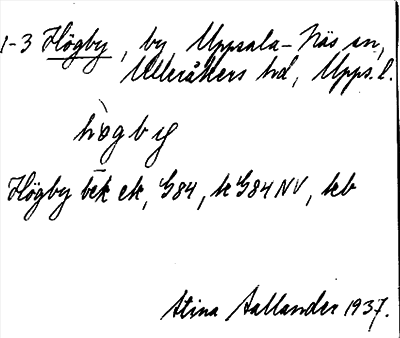 1-3 Högby, by, Uppsala-Näs sn,
Ulleråkers hd, Upps. l.
hògby
Högby bēk ek, G84, k G84 NV, kb
Stina Sallander 1937.